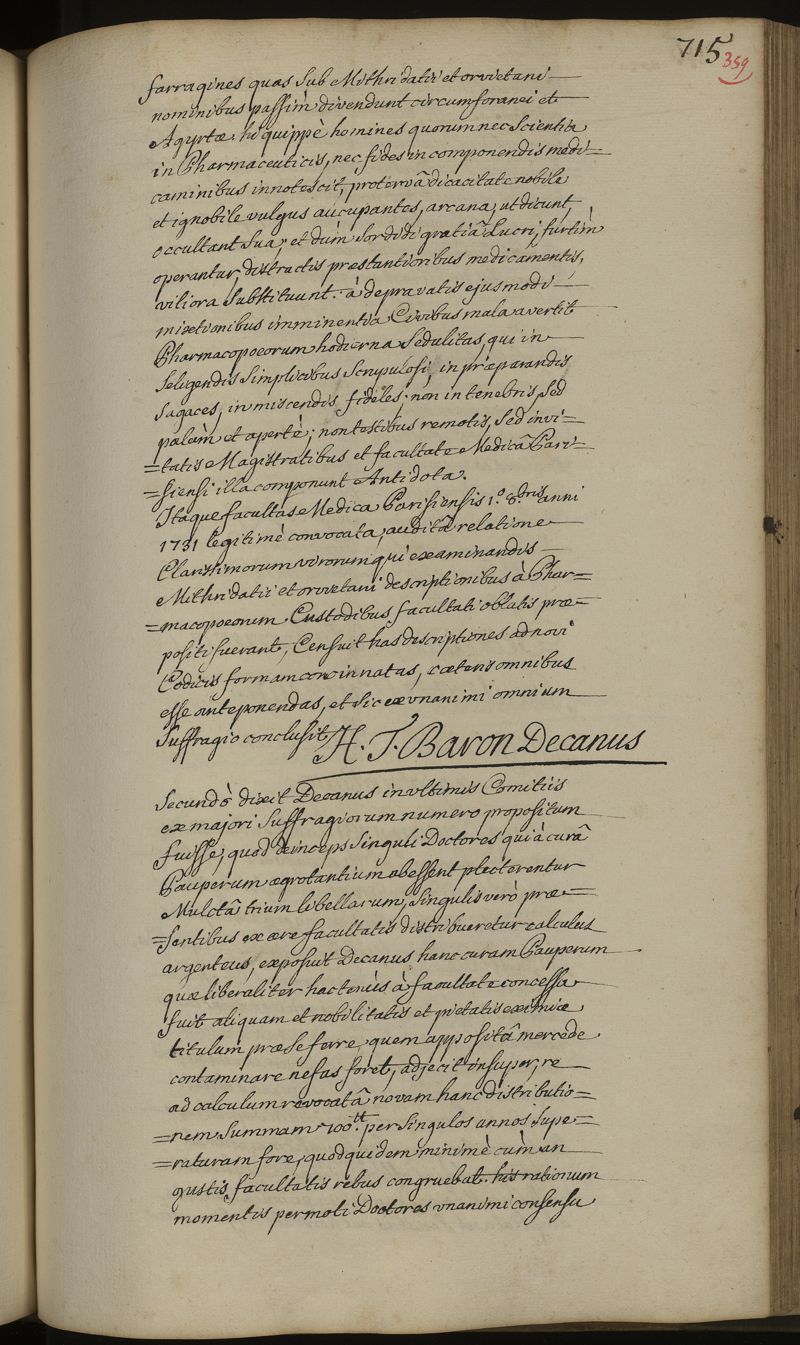 715
359
farragines quas sub Mithridatii et orvietani
nominibus passìm divendunt circumforanei et
Agyrtæ. hi quippè homines quorum nec scientia
in Pharmaceuticis, nec fides in componendis medi=
caminibus innotescit, protervâ dicacitate nobile
et ignobile vulgus aucupantes, arcana, ut dicunt,
occultant sua; et dùm sordidi gratiâ Lucri, furtìm
operantur, distractis præstantioribus medicamentis,
viliora substituunt. à depravatis ejusmodi
mixtionibus imminentia Civibus mala avertit
Pharmacopoeorum hodierna sedulitas, qui in
seligendis simplicibus scrupulosi, in præparandis
sagaces, in miscendis fideles; non in tenebris, sed
palàm et apertè; non testibus remotis, sed invi=
=tatis Magistratibus et facultate Medicâ Pari=
=siensi illa componunt Antidota.
Itaque facultas Medica Parisiensis 1.º 8.bris anni
1731 legitimè convocata, auditâ relatione
Clarissimorum virorum qui examinandis
Mithridatii et orvietani descriptionibus à Phar=
=macopoeorum Custodibus facultati oblatis præ=
positi fuerant, Censuit has descriptiones ad novi
Codicis formam concinnatas, cæteris omnibus
esse anteponendas, et sic ex unanimi omnium
suffragio conclusit H. T. Baron Decanus
Secundò dixit Decanus in ultimis Comitiis
ex majori suffragiorum numero propositum
fuisse, quod deinceps singuli Doctores qui à curâ
Pauperum ægrotantium abessent plecterentur
Mulctâ trium libellarum, singulis verò præ=
=sentibus ex ære facultatis distribueretur calculus
argenteus, exposuit Decanus hanc curam Pauperum
quæ liberaliter hactenùs à facultate concessa
fuit aliquam et nobilitatis et pietatis eximiæ
titulum præ se ferre, quem appositâ mercede
contaminare nefas foret, adjecit insuper, re
ad calculum revocatâ novam hanc distributio=
=nem summam 700.tt per singulos annos supe=
=raturam fore, quod quidem minimè cùm an
gustis facultatis rebus congruebat. his rationum
momentis permoti Doctores unanimi consensu